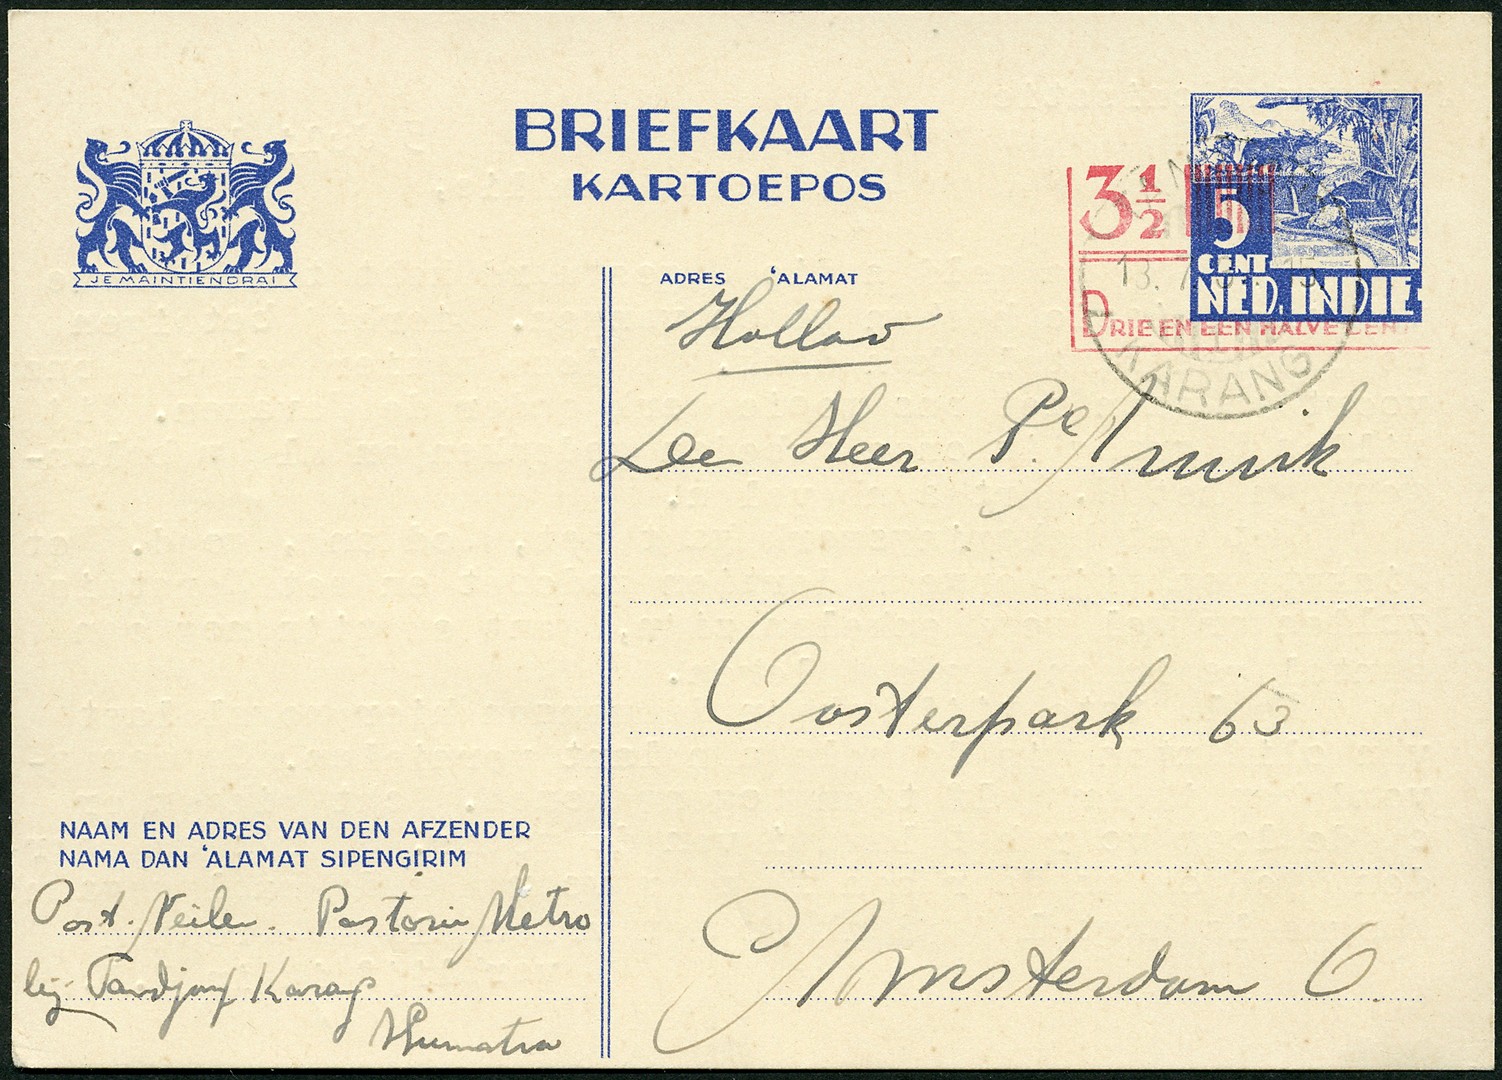 BRIEFKAART
KARTOEPOS
JE MAINTIENDRAI
ADRES 'ALAMAT
3 1/2
5
CENT
NED. INDIE
DRIE EN EEN HALVE CENT
13. 7.
KARANG
Hollad
Den Heer P.
Oosterpark 63
Amsterdam O.
NAAM EN ADRES VAN DEN AFZENDER
NAMA DAN 'ALAMAT SIPENGIRIM
Past. Neilen. Pastorie Metro
bij Tandjong Karang
Sumatra